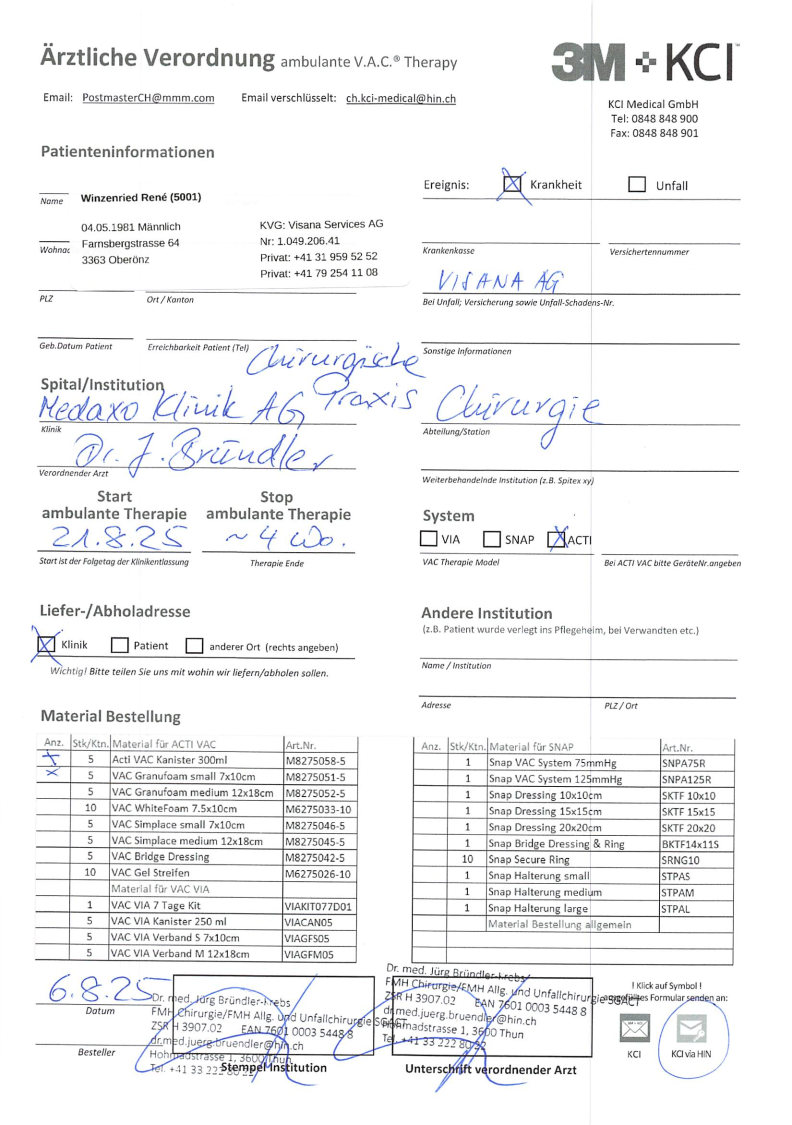 Ärztliche Verordnung ambulante V.A.C.® Therapy
3M + KCI™
Email: PostmasterCH@mmm.com Email verschlüsselt: ch.kci-medical@hin.ch
KCI Medical GmbH
Tel: 0848 848 900
Fax: 0848 848 901
Patienteninformationen
Name Winzenried René (5001)
04.05.1981 Männlich KVG: Visana Services AG
Farnsbergstrasse 64 Nr: 1.049.206.41
3363 Oberönz Privat: +41 31 959 52 52
Privat: +41 79 254 11 08
PLZ Ort / Kanton
Geb.Datum Patient Erreichbarkeit Patient (Tel)
Ereignis: Krankheit Unfall
Krankenkasse Versichertennummer
VISANA AG
Bei Unfall; Versicherung sowie Unfall-Schadens-Nr.
Sonstige Informationen
Spital/Institution
Chirurgische
Medaxo Klinik AG, Praxis
Klinik
Dr. J. Bründler
Verordnender Arzt
Chirurgie
Abteilung/Station
Weiterbehandelnde Institution (z.B. Spitex xy)
Start Stop
ambulante Therapie ambulante Therapie
21.8.25 ~ 4 Wo.
Start ist der Folgetag der Klinikentlassung Therapie Ende
System
VIA SNAP ACTI
VAC Therapie Model Bei ACTI VAC bitte GeräteNr.angeben
Liefer-/Abholadresse
Klinik Patient anderer Ort (rechts angeben)
Wichtig! Bitte teilen Sie uns mit wohin wir liefern/abholen sollen.
Andere Institution
(z.B. Patient wurde verlegt ins Pflegeheim, bei Verwandten etc.)
Name / Institution
Adresse PLZ / Ort
Material Bestellung
Anz. Stk/Ktn. Material für ACTI VAC Art.Nr.
5 Acti VAC Kanister 300ml M8275058-5
x 5 VAC Granufoam small 7x10cm M8275051-5
5 VAC Granufoam medium 12x18cm M8275052-5
10 VAC WhiteFoam 7.5x10cm M6275033-10
5 VAC Simplace small 7x10cm M8275046-5
5 VAC Simplace medium 12x18cm M8275045-5
5 VAC Bridge Dressing M8275042-5
10 VAC Gel Streifen M6275026-10
Material für VAC VIA
1 VAC VIA 7 Tage Kit VIAKIT077D01
5 VAC VIA Kanister 250 ml VIACAN05
5 VAC VIA Verband S 7x10cm VIAGFS05
5 VAC VIA Verband M 12x18cm VIAGFM05
Anz. Stk/Ktn. Material für SNAP Art.Nr.
1 Snap VAC System 75mmHg SNPA75R
1 Snap VAC System 125mmHg SNPA125R
1 Snap Dressing 10x10cm SKTF 10x10
1 Snap Dressing 15x15cm SKTF 15x15
1 Snap Dressing 20x20cm SKTF 20x20
1 Snap Bridge Dressing & Ring BKTF14x11S
10 Snap Secure Ring SRNG10
1 Snap Halterung small STPAS
1 Snap Halterung medium STPAM
1 Snap Halterung large STPAL
Material Bestellung allgemein
6.8.25
Datum
Besteller
Dr. med. Jürg Bründler-Krebs
FMH Chirurgie/FMH Allg. und Unfallchirurgie SGACT
ZSR H 3907.02 EAN 7601 0003 5448 8
dr.med.juerg.bruendler@hin.ch
Hohmadstrasse 1, 3600 Thun
Tel. +41 33 222 80 32
Stempel Institution
Dr. med. Jürg Bründler-Krebs
FMH Chirurgie/FMH Allg. und Unfallchirurgie SGACT
ZSR H 3907.02 EAN 7601 0003 5448 8
dr.med.juerg.bruendler@hin.ch
Hohmadstrasse 1, 3600 Thun
Tel. +41 33 222 80 32
Unterschrift verordnender Arzt
! Klick auf Symbol !
ausgefülltes Formular senden an:
KCI KCI via HIN